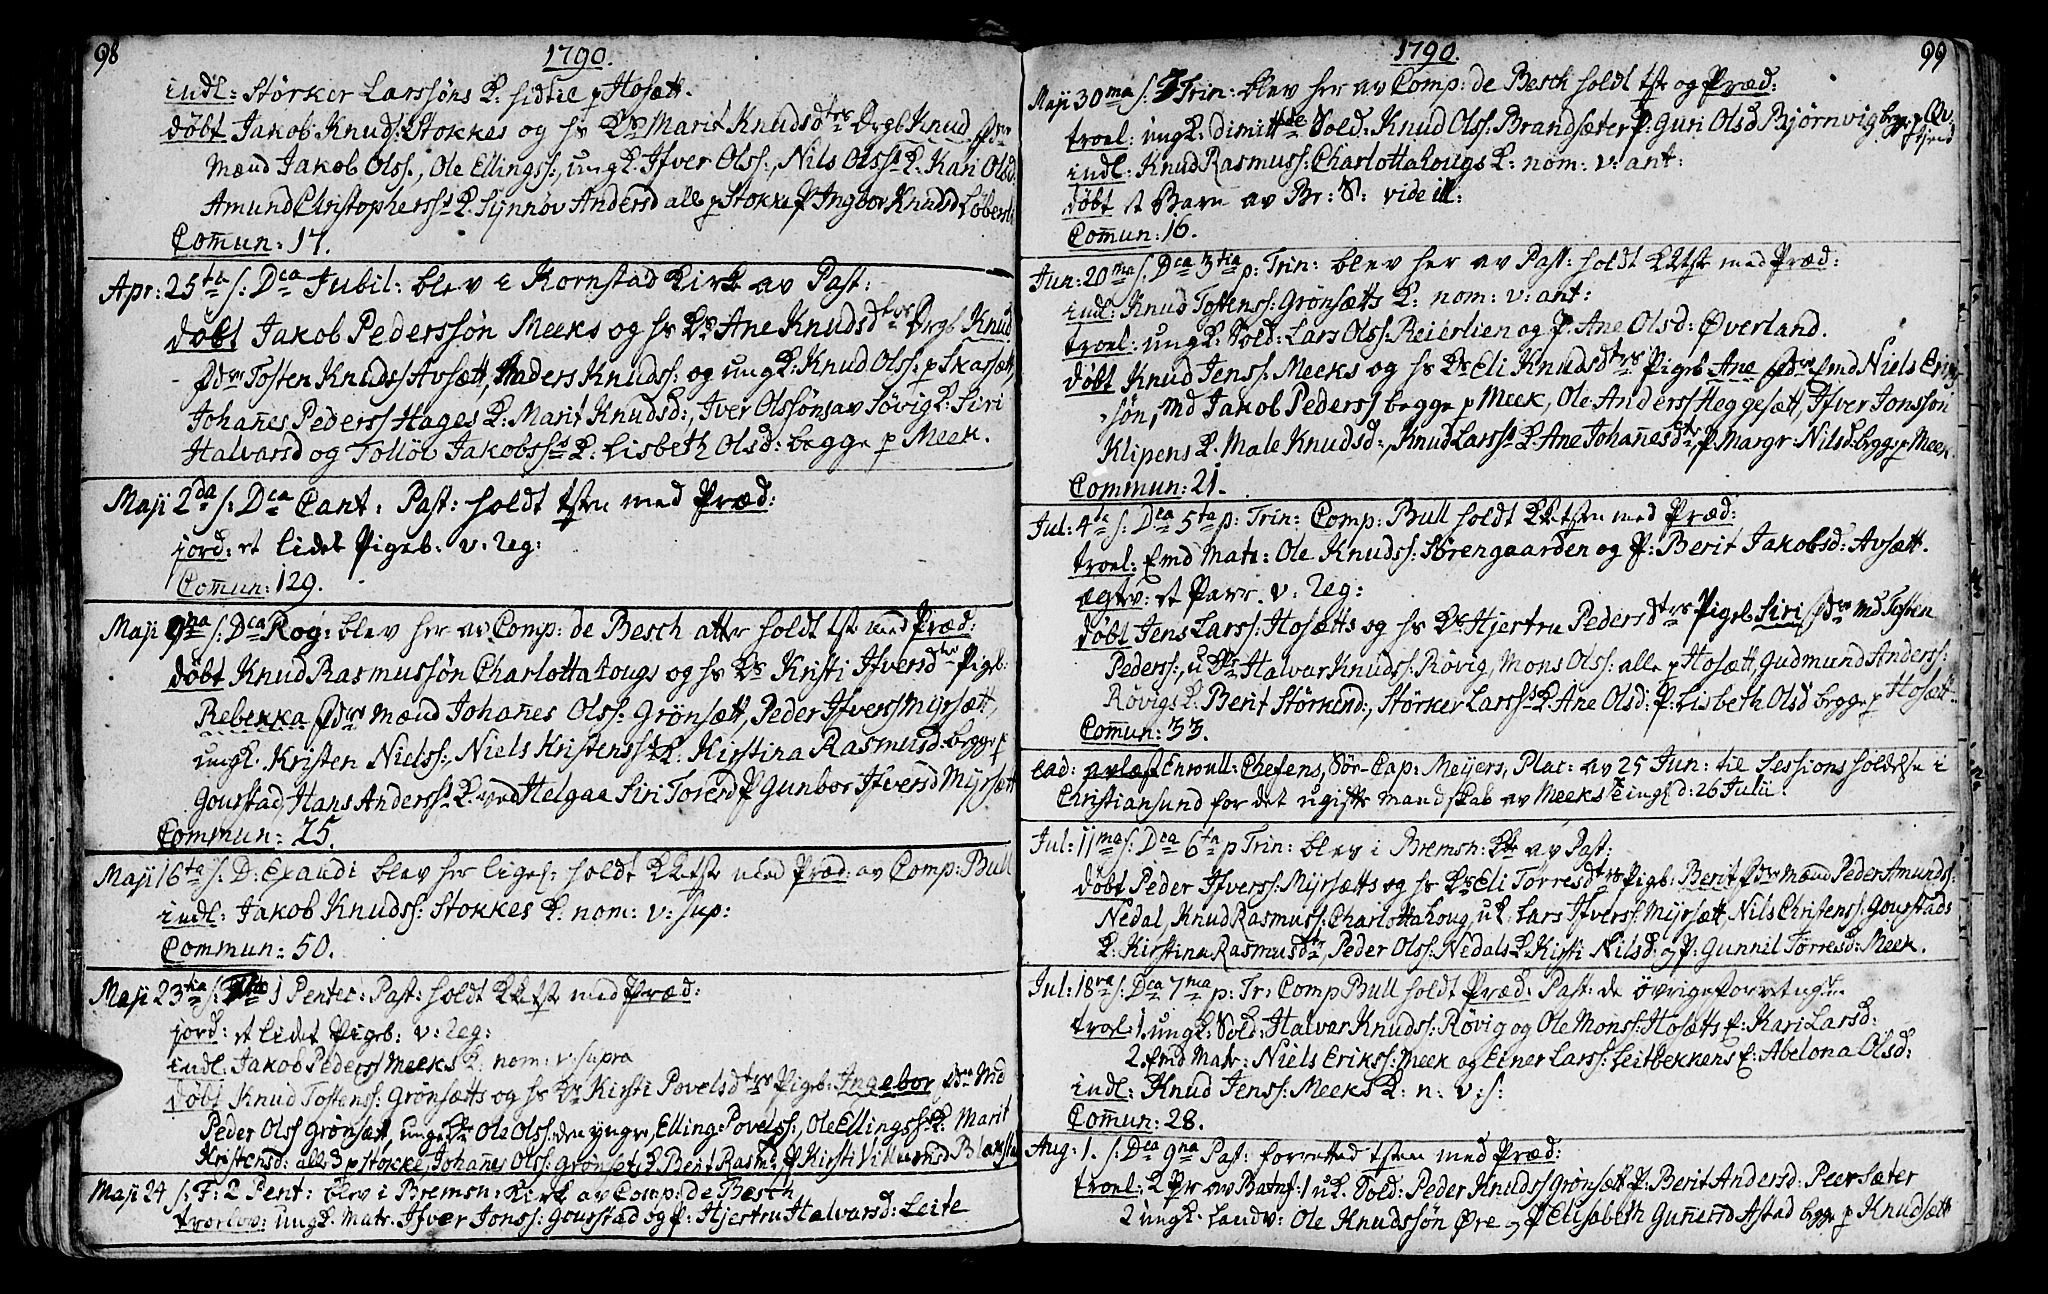 98
1790.
indl: Störker Larssöns K: sidtil p Hosætt.
döbt Jakob Knuds: Stokkes og hs K Marit Knudsd Drgb Knud
Mænd Jakob Olss:, Ole Ellingss:, ungk Ifver Olss:, Nils Olss K: Kari Olsd:
Amund Christopherss K. Synnöv Andersd alle p Stokke P Ingbor Knudsd
Comun: 17.
Apr: 25 ta s: Dca Jubil: blev i Kornstad Kirk av Past:
döbt Jakob Pederssön Meeks og hs K Ane Knudsd Drgb Knud
Tosten Knuds Avsætt, Anders Knuds: og ungk: Knud Olss: p Skarsætt,
Johanes Peders Hages K: Marit Knudsd:, Iver Olssöns av Sövig K: Siri
Halvarsd og Tollöv Jakobs K: Lisbeth Olsd: begge p Meek.
Maji 2 da s: Dca Cant: Past: holdt tsten med Præd:
jord: et lidet Pigeb: v: Leg:
Comun: 129.
Maji 9 na s: Dca Rog: blev her av Comp: de Besch atter holdt tst med Præd:
döbt Knud Rasmussön Charlotta Lougs og hs K Kristi Ifversd Pigb:
Rebekka Mænd Johanes Olss: Grönsætt, Peder Ifvers Myrsætt,
ungk. Kristen Nielss:, Niels Kristens K. Kirstina Rasmusd: begge p
Gourstad, Hans Anders K. ved Helgaa Siri Toresd P Gunbor Ifversd Myrsætt
Commun: 25.
Maji 16 ta s: D: Exaudi blev her liges: holdt KKtst med Præd: av Comp: Bull
indl: Jakob Knuds: Stokkes K: nom: v: sup:
Commun: 50.
Maji 23 tia s: 1 Pentec: Past: holdt KKtst med Præd:
jord: et lidet Pigeb: v: Leg:
indl: Jakob Peders Meeks K: nom: v: supra
döbt Knud Tostens: Grönsætts og hs K Kirsti Povelsd Pigeb: Ingebor Md
Peder Olss Grönsætt, ungk Ole Olss: den yngre, Elling: Povelss: Ole Ellings K: Marit
Kristensd: alle 3 p Stokke, Johanes Olss: Grönset K Berit Rasmd P Kirsti
Maji 24 s: F: 2 Pent: blev i Bremsn: Kirk av Comp: de Besch
trolov: ungk. Matr. Ifver Jonss: Gourstad og P: Hjertru Halvarsd: Leite
1790.
99
Maji 30 ma s: Trin: blev her av Comp: de Besch holdt tst og Præd:
troel: ungk: dimitt Sold: Knud Olss: Brandsæter P: Guri Olsd Bjørnvig
indl: Knud Rasmuss: Charlotta Lougs K: nom: v: ant:
döbt et Barn av Br: S: vide ill:
Comun: 16.
Jun: 20 ma s: Dca 3 tia p: Trin: blev her av Past: holdt KKtst med Præd:
indl: Knud Tostenss: Grönsætts K: nom: v: ant:
troel: ungk: Sold: Lars Olss: Reierlien og P: Ane Olsd: Øverland.
döbt Knud Jenss: Meeks og hs K Eli Knudsd Pigeb Ane Md Niels Erik
sön, Md Jakob Peders begge p Meek, Ole Anders Heggesætt, Ifver Jonsson
Klipens K. Male Knudsd:, Knud Larss K Ane Johanesd P. Margr: Nilsd: begge p Meek
Commun: 21.
Jul: 4 ta s: Dca 5 ta p: Trin: Comp: Bull holdt KKtsten med Præd:
troel: Emd Matr: Ole Knuds: Sörengaarden og P: Berit Jakobsd: Avsætt.
ægtev: et Parr. v: Leg:
döbt Jens Larss: Hosætts og hs K Hjertru Pedersd Pigeb Siri Md Tosten
Pederss:, u K Halvar Knuds: Rövig, Mons Olss: alle p Hosætt, Gudmund Anderss:
Rövigs K. Berit Störkend:, Störker Larss K Ane Olsd: P: Lisbeth Olsd begge p Hosætt.
Comun: 33.
ead: avlæst Enroull: Chefens, Sör-Cap: Meijers, Plac: av 25 Jun: til Sessions Holdelse i
Christiansund for det ugifte Mandskab av Meeks d: 26 Julii.
Jul: 11 ma s: Dca 6 ta p Trin: blev i Bremsn: av Past:
döbt Peder Ifvers: Myrsætts og hs K Eli Torresd Pigb: Berit Mænd Peder Amunds:
Nedal, Knud Rasmuss: Charlotta Loug, uk: Lars Ifverss: Myrsætt, Nils Christens: Gourstads
K. Kirstina Rasmusd, Peder Olss: Nedals K Kirsti Nilsd: og P: Gunnil Torresd: Meek.
Jul: 18 va s: Dca 7 ma p: Tr: Comp Bull holdt Præd: Past: de övrige forretng:
troel: 1. ungk: Sold: Halvar Knuds: Rövig og Ole Monss: Hosætts E: Kari Larsd:
2. Emd Matr: Niels Eriks: Meek og Einer Larss: Leitbekkens E: Abelona Olsd:
indl: Knud Jenss: Meeks K: n: v: s:
Comun: 28.
Aug: 1. s: Dca 9 na Past: forretted tsten med Præd:
troel: 2 Pr av 1 uk: Sold: Peder Knuds Grönsætt P: Berit Andersd: Peersæter
2 ungk. Landv: Ole Knudssön Øre og P Elisabeth Gunersd Astad begge p Knudsætt